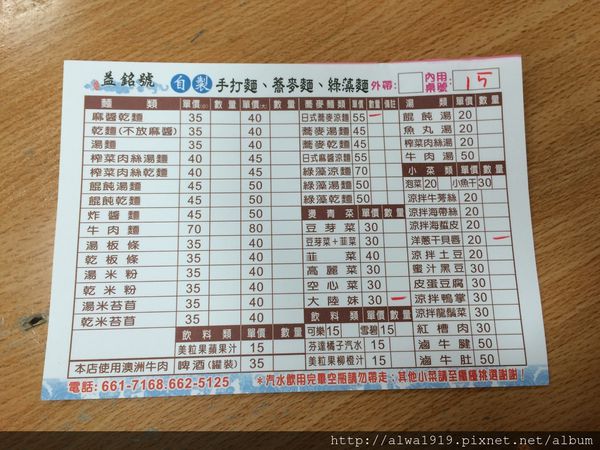 益銘號 自製 手打麵、蕎麥麵、綠藻麵 外帶 內用桌號 15
麵類 單價(小) 數量 單價(大) 數量
麻醬乾麵 35 40
乾麵(不放麻醬) 35 40
湯麵 35 40
榨菜肉絲湯麵 40 45
榨菜肉絲乾麵 40 45
餛飩湯麵 45 50
餛飩乾麵 45 50
炸醬麵 45 50
牛肉麵 70 80
湯板條 35 40
乾板條 35 40
湯米粉 35 40
乾米粉 35 40
湯米苔苜 35 40
乾米苔苜 35 40
飲料類 單價 數量
美粒果蘋果汁 15
本店使用澳洲牛肉 啤酒(罐裝) 35
蕎麥麵類 單價 數量 備註
日式蕎麥涼麵 55 一
蕎麥湯麵 45
蕎麥乾麵 45
日式麻醬涼麵 55
綠藻涼麵 70
綠藻湯麵 50
綠藻乾麵 50
燙青菜 單價 數量
豆芽菜 30
豆芽菜+韭菜 30
韭菜 40
高麗菜 30
空心菜 30
大陸妹 30 一
飲料類 單價 數量
可樂 15 雪碧 15
芬達橘子汽水 15
美粒果柳橙汁 15
湯類 單價 數量
餛飩湯 20
魚丸湯 20
榨菜肉絲湯 20
牛肉湯 50
小菜類 單價 數量
泡菜 20 小魚干 30
涼拌牛蒡絲 20
涼拌海帶絲 20
涼拌海蜇皮 20
洋蔥干貝唇 20 一
涼拌土豆 20
蜜汁黑豆 30
皮蛋豆腐 30
涼拌鴨掌 30
涼拌龍鬚菜 30
紅槽肉 30
滷牛腱 50
滷牛肚 50
電話:661-7168.662-5125 *汽水飲用完畢空瓶請勿帶走;其他小菜請至櫃檯挑選謝謝!
http://alwa1919.pixnet.net/album